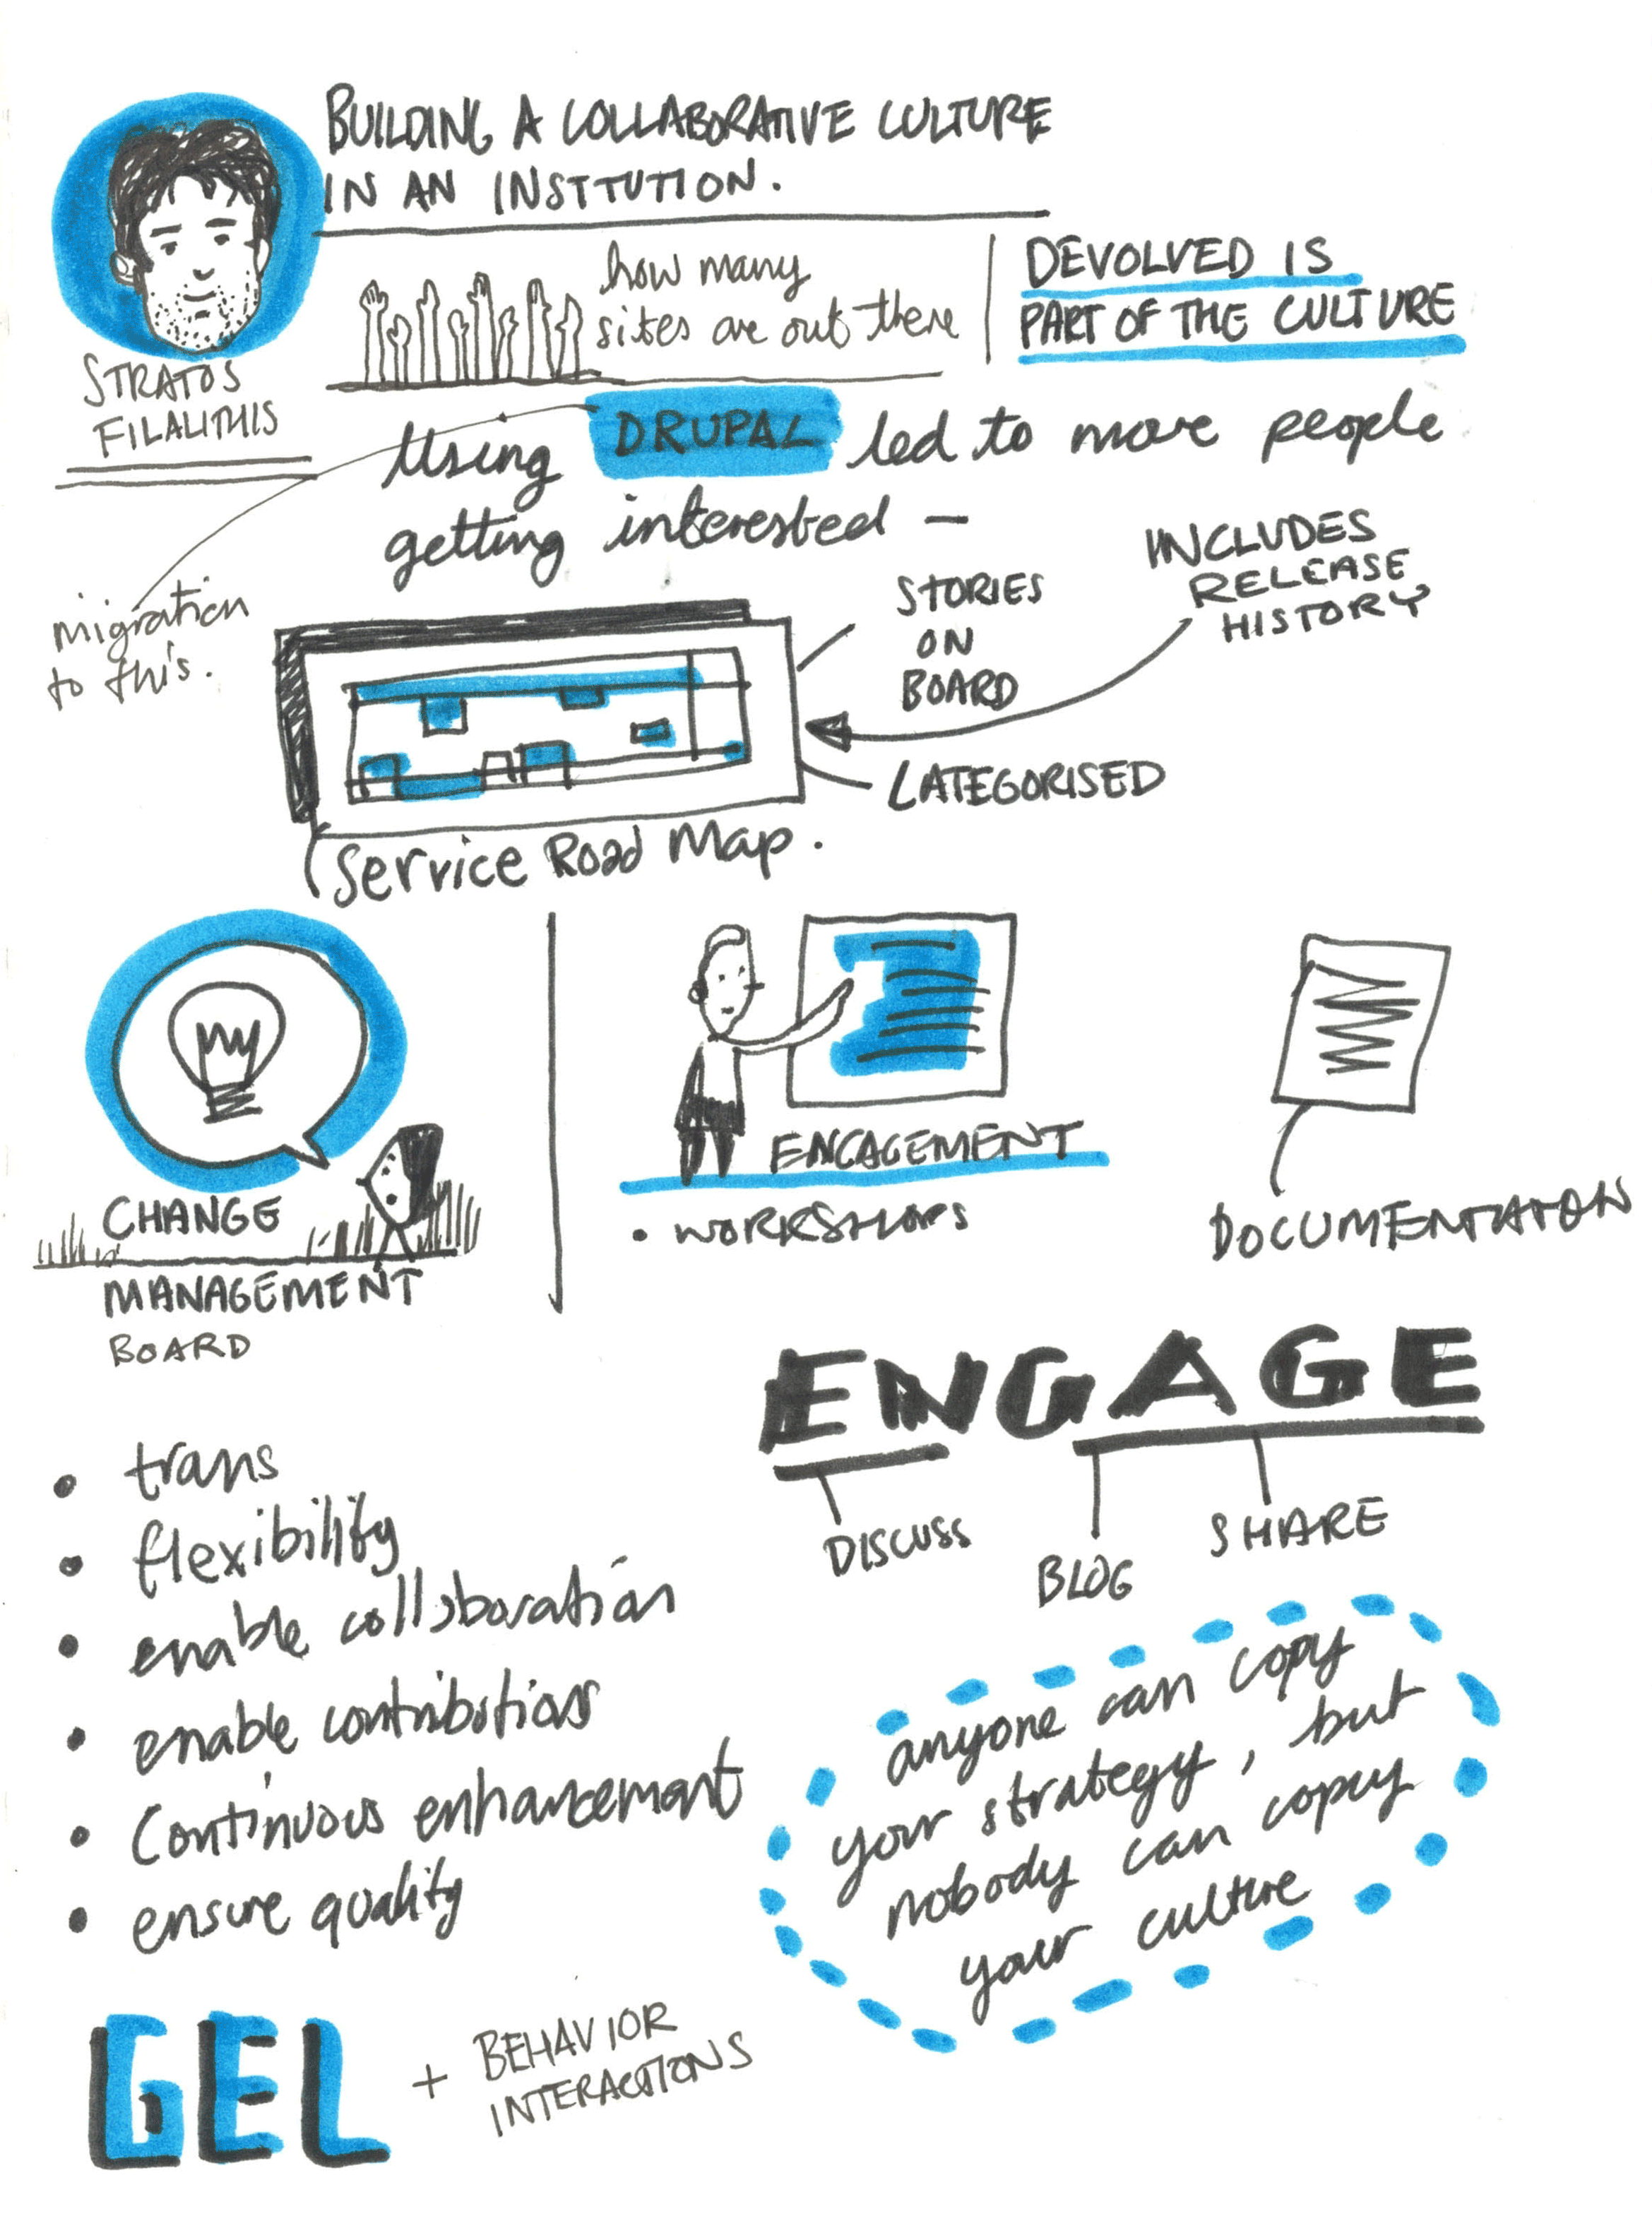 BUILDING A COLLABORATIVE CULTURE
IN AN INSTTUTION.
STRATOS
FILALITHIS
how many
sites are out there
DEVOLVED IS
PART OF THE CULTURE
Using DRUPAL led to more people
getting interested —
migration
to this.
STORIES
ON
BOARD
INCLUDES
RELEASE
HISTORY
CATEGORISED
Service Road Map.
CHANGE
MANAGEMENT
BOARD
ENGAGEMENT
• WORKSHOPS
DOCUMENTATION
ENGAGE
DISCUSS
BLOG
SHARE
• trans
• flexibility
• enable collaboration
• enable contributions
• Continuous enhancement
• ensure quality
anyone can copy
your strategy, but
nobody can copy
your culture
GEL + BEHAVIOR
INTERACTIONS